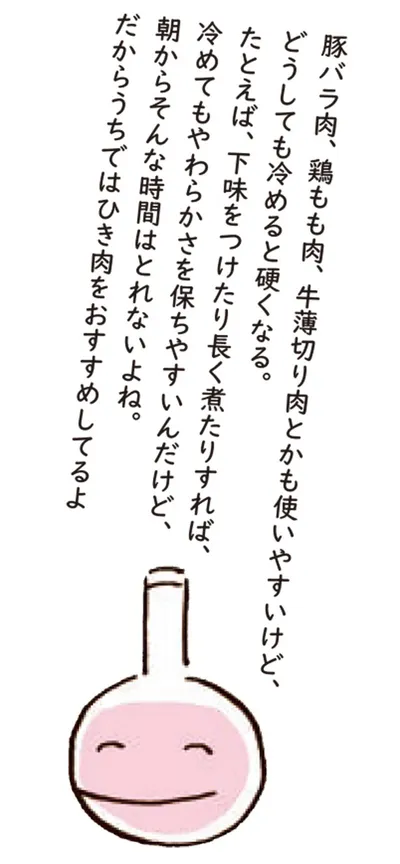 豚バラ肉、鶏もも肉、牛薄切り肉とかも使いやすいけど、
どうしても冷めると硬くなる。
たとえば、下味をつけたり長く煮たりすれば、
冷めてもやわらかさを保ちやすいんだけど、
朝からそんな時間はとれないよね。
だからうちではひき肉をおすすめしてるよ